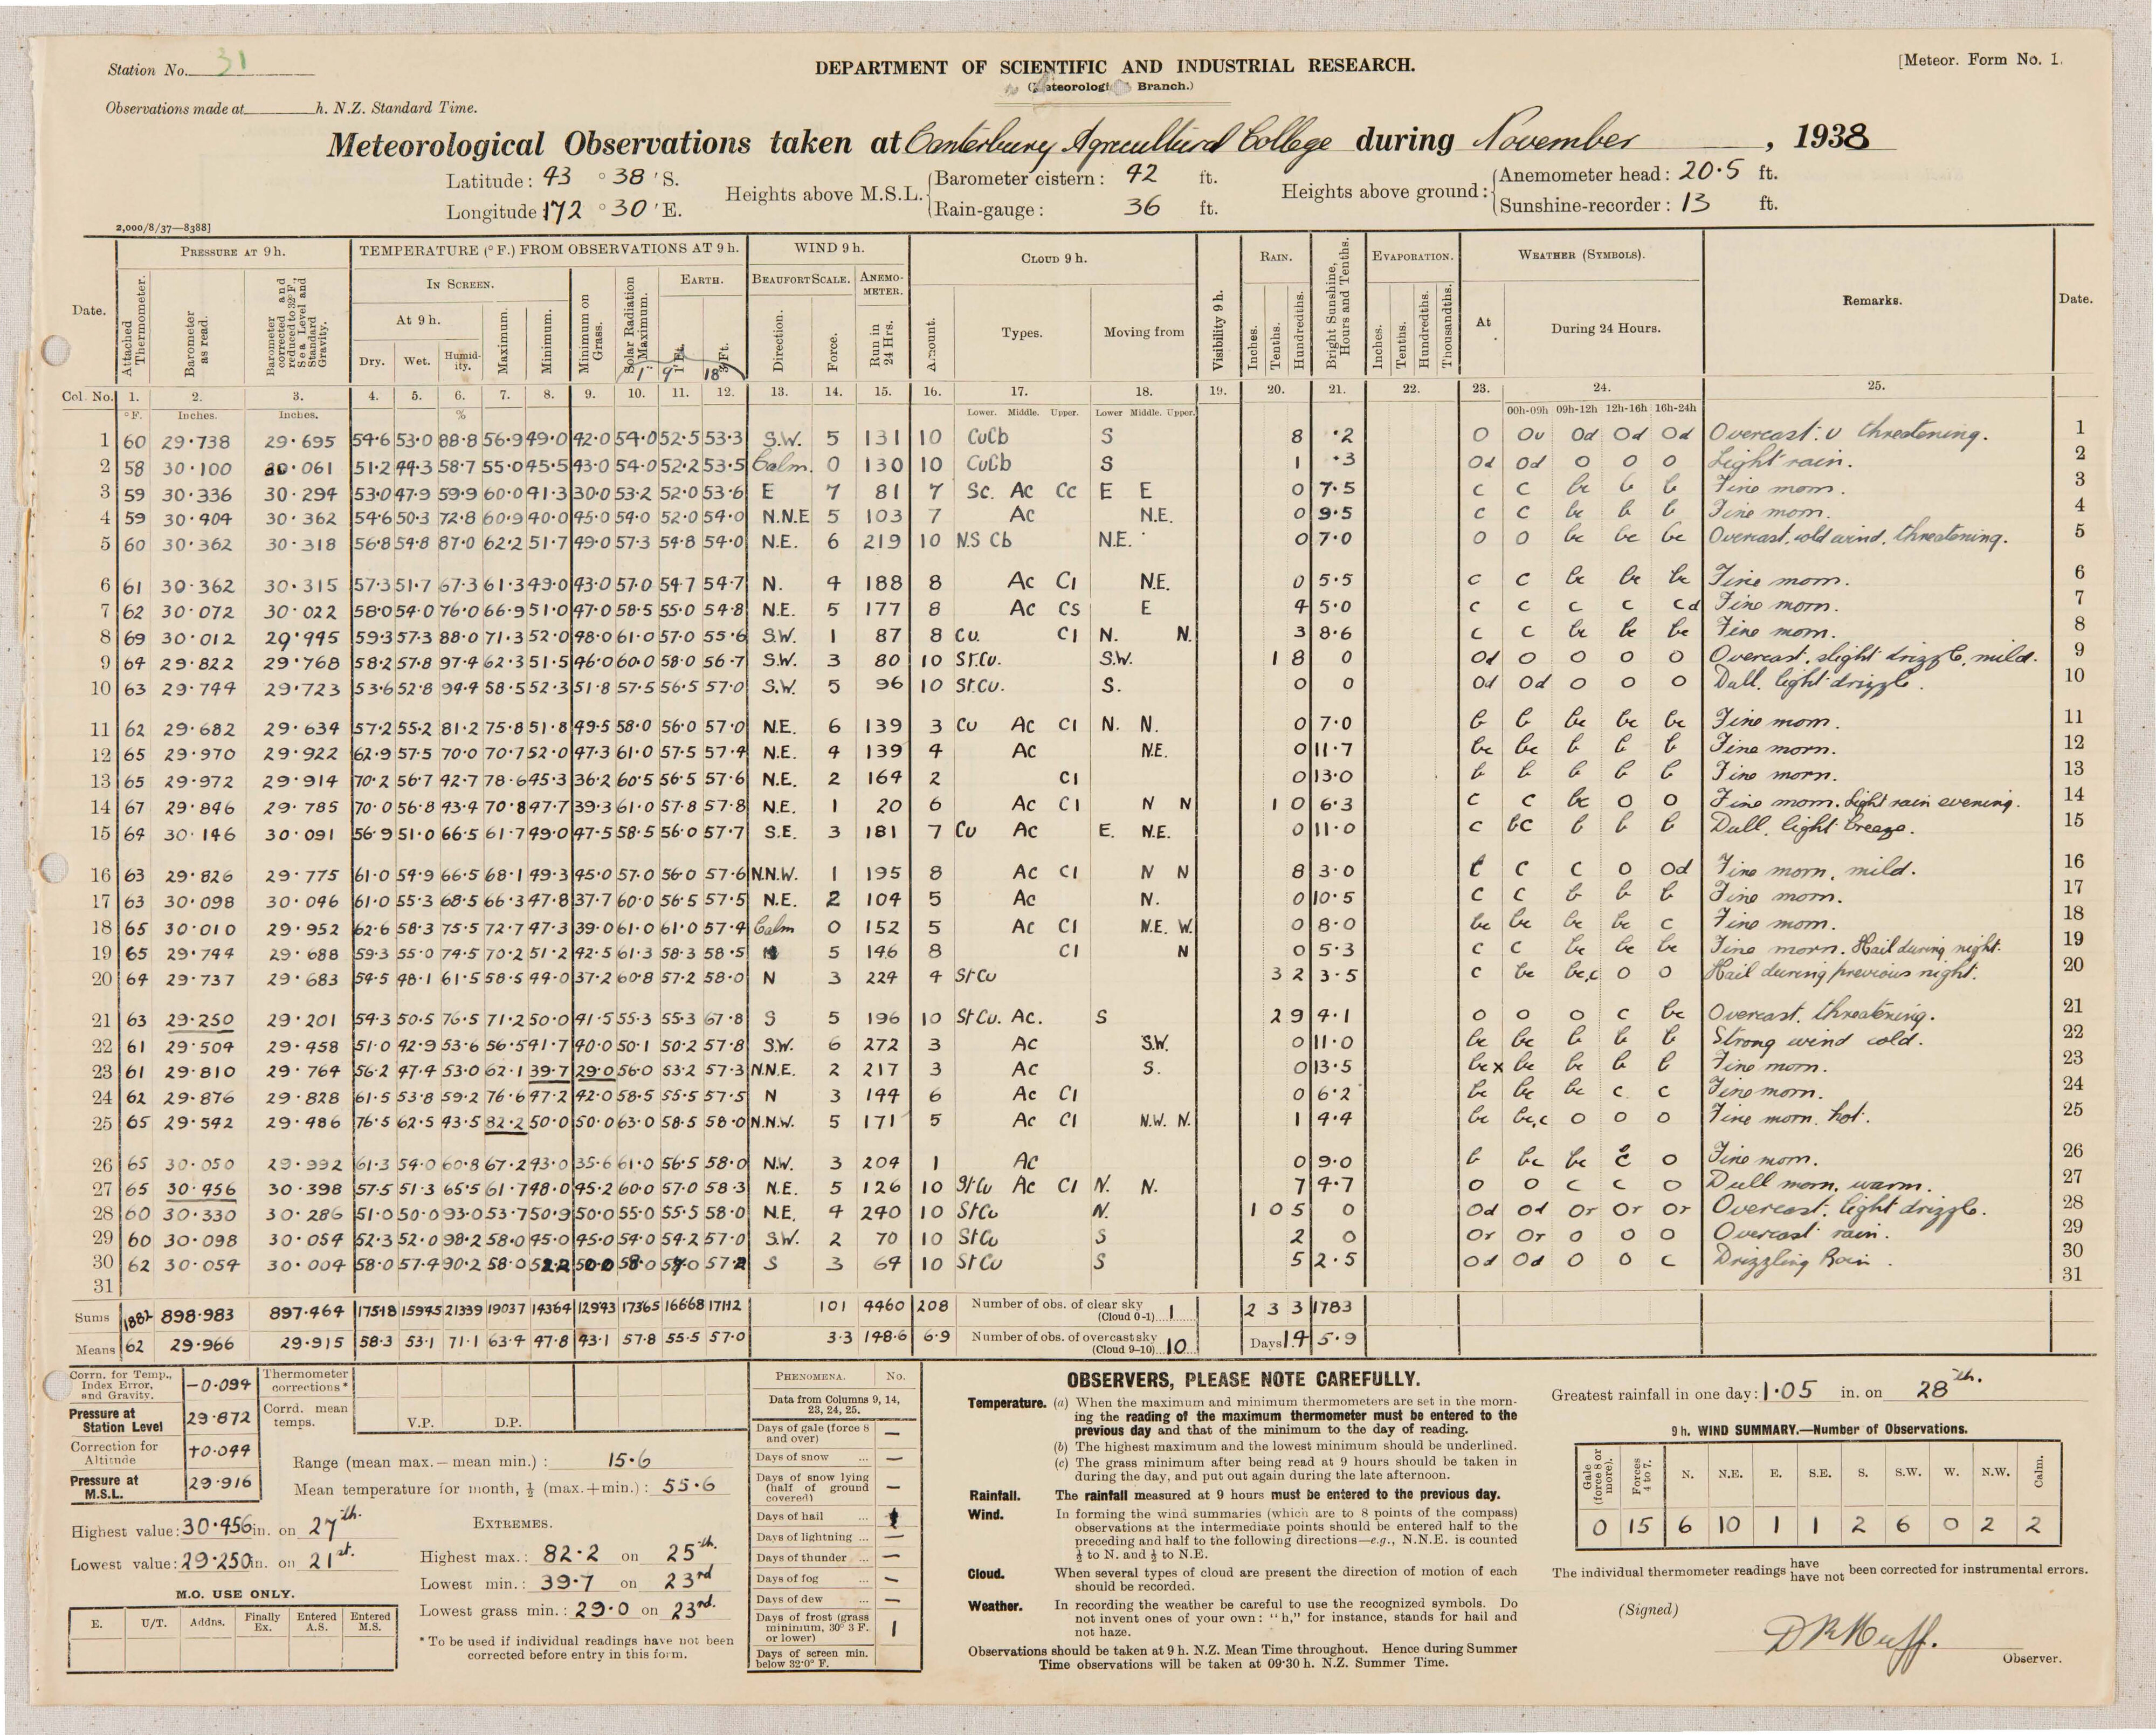 Station No. 31
DEPARTMENT OF SCIENTIFIC AND INDUSTRIAL RESEARCH.
[Meteor. Form No. 1.
Branch.)
Observations made at h. N.Z. Standard Time.
Meteorological Observations taken at Canterbury Agricultural College during November , 1938
Latitude: 43 ° 38 ' S. Heights above M.S.L. Barometer cistern: 42 ft. Heights above ground: Anemometer head: 20·5 ft.
Longitude 172 ° 30 ' E. Rain-gauge: 36 ft. Sunshine-recorder: 13 ft.
2,000/8/37—8388]
Date. PRESSURE AT 9 h. TEMPERATURE (° F.) FROM OBSERVATIONS AT 9 h. WIND 9 h. CLOUD 9 h. Visibility 9 h. RAIN. Bright Sunshine, Hours and Tenths. EVAPORATION. WEATHER (SYMBOLS). Remarks. Date.
Attached Thermometer. Barometer as read. Barometer corrected and reduced to 32° F., Sea Level and Standard Gravity. IN SCREEN. Minimum on Grass. Solar Radiation Maximum. EARTH. BEAUFORT SCALE. ANEMOMETER.
At 9 h. Maximum. Minimum. 1 Ft. 3 Ft. Direction. Force. Run in 24 Hrs. Amount. Types. Moving from Inches. Tenths. Hundredths. Inches. Tenths. Hundredths. Thousandths. At During 24 Hours.
Dry. Wet. Humidity. 1" 9" 18"
Col. No. 1. 2. 3. 4. 5. 6. 7. 8. 9. 10. 11. 12. 13. 14. 15. 16. 17. 18. 19. 20. 21. 22. 23. 24. 25.
°F. Inches. Inches. % Lower. Middle. Upper. Lower Middle. Upper. 00h-09h 09h-12h 12h-16h 16h-24h
1 60 29·738 29·695 54·6 53·0 88·8 56·9 49·0 42·0 54·0 52·5 53·3 S.W. 5 131 10 CuCb S 8 ·2 O Ou Od Od Od Overcast: U threatening. 1
2 58 30·100 30·061 51·2 44·3 58·7 55·0 45·5 43·0 54·0 52·2 53·5 Calm. 0 130 10 CuCb S 1 ·3 Od Od O O O Light rain. 2
3 59 30·336 30·294 53·0 47·9 59·9 60·0 41·3 30·0 53·2 52·0 53·6 E 7 81 7 Sc. Ac Cc E E 0 7·5 c c bc b b Fine morn. 3
4 59 30·404 30·362 54·6 50·3 72·8 60·9 40·0 45·0 54·0 52·0 54·0 N.N.E 5 103 7 Ac N.E. 0 9·5 c c bc b b Fine morn. 4
5 60 30·362 30·318 56·8 54·8 87·0 62·2 51·7 49·0 57·3 54·8 54·0 N.E. 6 219 10 N.S Cb N.E. 0 7·0 O O bc bc bc Overcast, cold wind, threatening. 5
6 61 30·362 30·315 57·3 51·7 67·3 61·3 49·0 43·0 57·0 54·7 54·7 N. 4 188 8 Ac CI N.E. 0 5·5 c c bc bc bc Fine morn. 6
7 62 30·072 30·022 58·0 54·0 76·0 66·9 51·0 47·0 58·5 55·0 54·8 N.E. 5 177 8 Ac Cs E 4 5·0 c c c c cd Fine morn. 7
8 69 30·012 29·995 59·3 57·3 88·0 71·3 52·0 48·0 61·0 57·0 55·6 S.W. 1 87 8 Cu. CI N. N. 3 8·6 c c bc bc bc Fine morn. 8
9 64 29·822 29·768 58·2 57·8 97·4 62·3 51·5 46·0 60·0 58·0 56·7 S.W. 3 80 10 St.Cu. S.W. 1 8 0 Od O O O O Overcast, slight drizzle, mild. 9
10 63 29·744 29·723 53·6 52·8 94·4 58·5 52·3 51·8 57·5 56·5 57·0 S.W. 5 96 10 St.Cu. S. 0 0 Od Od O O O Dull. light drizzle. 10
11 62 29·682 29·634 57·2 55·2 81·2 75·8 51·8 49·5 58·0 56·0 57·0 N.E. 6 139 3 Cu Ac CI N. N. 0 7·0 b b bc bc bc Fine morn. 11
12 65 29·970 29·922 62·9 57·5 70·0 70·7 52·0 47·3 61·0 57·5 57·4 N.E. 4 139 4 Ac N.E. 0 11·7 bc bc b b b Fine morn. 12
13 65 29·972 29·914 70·2 56·7 42·7 78·6 45·3 36·2 60·5 56·5 57·6 N.E. 2 164 2 CI 0 13·0 b b b b b Fine morn. 13
14 67 29·846 29·785 70·0 56·8 43·4 70·8 47·7 39·3 61·0 57·8 57·8 N.E. 1 20 6 Ac CI N N 1 0 6·3 c c bc O O Fine morn. Light rain evening. 14
15 64 30·146 30·091 56·9 51·0 66·5 61·7 49·0 47·5 58·5 56·0 57·7 S.E. 3 181 7 Cu Ac E. N.E. 0 11·0 c bc b b b Dull, light breeze. 15
16 63 29·826 29·775 61·0 54·9 66·5 68·1 49·3 45·0 57·0 56·0 57·6 N.N.W. 1 195 8 Ac CI N N 8 3·0 c c c O Od Fine morn, mild. 16
17 63 30·098 30·046 61·0 55·3 68·5 66·3 47·8 37·7 60·0 56·5 57·5 N.E. 2 104 5 Ac N. 0 10·5 c c b b b Fine morn. 17
18 65 30·010 29·952 62·6 58·3 75·5 72·7 47·3 39·0 61·0 61·0 57·4 Calm 0 152 5 Ac CI N.E. W. 0 8·0 bc bc bc bc c Fine morn. 18
19 65 29·744 29·688 59·3 55·0 74·5 70·2 51·2 42·5 61·3 58·3 58·5 5 146 8 CI N 0 5·3 c c bc bc bc Fine morn. Hail during night. 19
20 64 29·737 29·683 54·5 48·1 61·5 58·5 44·0 37·2 60·8 57·2 58·0 N 3 224 4 StCu 3 2 3·5 c bc bc,c O O Hail during previous night. 20
21 63 29·250 29·201 54·3 50·5 76·5 71·2 50·0 41·5 55·3 55·3 67·8 S 5 196 10 StCu. Ac. S 2 9 4·1 O O O c bc Overcast. threatening. 21
22 61 29·504 29·458 51·0 42·9 53·6 56·5 41·7 40·0 50·1 50·2 57·8 S.W. 6 272 3 Ac S.W. 0 11·0 bc bc b b b Strong wind cold. 22
23 61 29·810 29·764 56·2 47·4 53·0 62·1 39·7 29·0 56·0 53·2 57·3 N.N.E. 2 217 3 Ac S. 0 13·5 bcx bc bc b b Fine morn. 23
24 62 29·876 29·828 61·5 53·8 59·2 76·6 47·2 42·0 58·5 55·5 57·5 N 3 144 6 Ac CI 0 6·2 bc bc bc c c Fine morn. 24
25 65 29·542 29·486 76·5 62·5 43·5 82·2 50·0 50·0 63·0 58·5 58·0 N.N.W. 5 171 5 Ac CI N.W. N. 1 4·4 bc bc,c O O O Fine morn. hot. 25
26 65 30·050 29·992 61·3 54·0 60·8 67·2 43·0 35·6 61·0 56·5 58·0 N.W. 3 204 1 Ac 0 9·0 b bc bc c O Fine morn. 26
27 65 30·456 30·398 57·5 51·3 65·5 61·7 48·0 45·2 60·0 57·0 58·3 N.E. 5 126 10 StCu Ac CI N. N. 7 4·7 O O c c O Dull morn, warm. 27
28 60 30·330 30·286 51·0 50·0 93·0 53·7 50·9 50·0 55·0 55·5 58·0 N.E. 4 240 10 StCu N. 1 0 5 0 Od Od Or Or Or Overcast, light drizzle. 28
29 60 30·098 30·054 52·3 52·0 98·2 58·0 45·0 45·0 54·0 54·2 57·0 S.W. 2 70 10 StCu S 2 0 Or Or O O O Overcast rain. 29
30 62 30·054 30·004 58·0 57·4 90·2 58·0 S 3 64 10 StCu S 5 2·5 Od Od O O c Drizzling Rain. 30
31 31
Sums 1882 898·983 897·464 17518 15945 21339 19037 14364 12943 17365 16668 17112 101 4460 208 Number of obs. of clear sky (Cloud 0-1) 1 2 3 3 1783
Means 62 29·966 29·915 58·3 53·1 71·1 63·4 47·8 43·1 57·8 55·5 57·0 3·3 148·6 6·9 Number of obs. of overcast sky (Cloud 9–10) 10 Days 14 5·9
Corrn. for Temp., Index Error, and Gravity. −0·094
Pressure at Station Level 29·872
Correction for Altitude +0·044
Pressure at M.S.L. 29·916
Highest value: 30·456 in. on 27th.
Lowest value: 29·250 in. on 21st.
M.O. USE ONLY.
E. U/T. Addns. Finally Ex. Entered A.S. Entered M.S.
Thermometer corrections*
Corrd. mean temps. V.P. D.P.
Range (mean max.—mean min.): 15·6
Mean temperature for month, ½ (max.+min.): 55·6
EXTREMES.
Highest max.: 82·2 on 25th.
Lowest min.: 39·7 on 23rd
Lowest grass min.: 29·0 on 23rd.
* To be used if individual readings have not been
corrected before entry in this form.
PHENOMENA. No.
Data from Columns 9, 14, 23, 24, 25.
Days of gale (force 8 and over) —
Days of snow ... —
Days of snow lying (half of ground covered) —
Days of hail ...
Days of lightning ... —
Days of thunder ... —
Days of fog ... —
Days of dew ... —
Days of frost (grass minimum, 30° 3 F. or lower) 1
Days of screen min. below 32·0° F.
OBSERVERS, PLEASE NOTE CAREFULLY.
Temperature. (a) When the maximum and minimum thermometers are set in the morn-
ing the reading of the maximum thermometer must be entered to the
previous day and that of the minimum to the day of reading.
(b) The highest maximum and the lowest minimum should be underlined.
(c) The grass minimum after being read at 9 hours should be taken in
during the day, and put out again during the late afternoon.
Rainfall. The rainfall measured at 9 hours must be entered to the previous day.
Wind. In forming the wind summaries (which are to 8 points of the compass)
observations at the intermediate points should be entered half to the
preceding and half to the following directions—e.g., N.N.E. is counted
½ to N. and ½ to N.E.
Cloud. When several types of cloud are present the direction of motion of each
should be recorded.
Weather. In recording the weather be careful to use the recognized symbols. Do
not invent ones of your own: "h," for instance, stands for hail and
not haze.
Observations should be taken at 9 h. N.Z. Mean Time throughout. Hence during Summer
Time observations will be taken at 09·30 h. N.Z. Summer Time.
Greatest rainfall in one day: 1·05 in. on 28th.
9 h. WIND SUMMARY.—Number of Observations.
Gale (force 8 or more). Forces 4 to 7. N. N.E. E. S.E. S. S.W. W. N.W. Calm.
0 15 6 10 1 1 2 6 0 2 2
The individual thermometer readings have / have not been corrected for instrumental errors.
(Signed)
Observer.